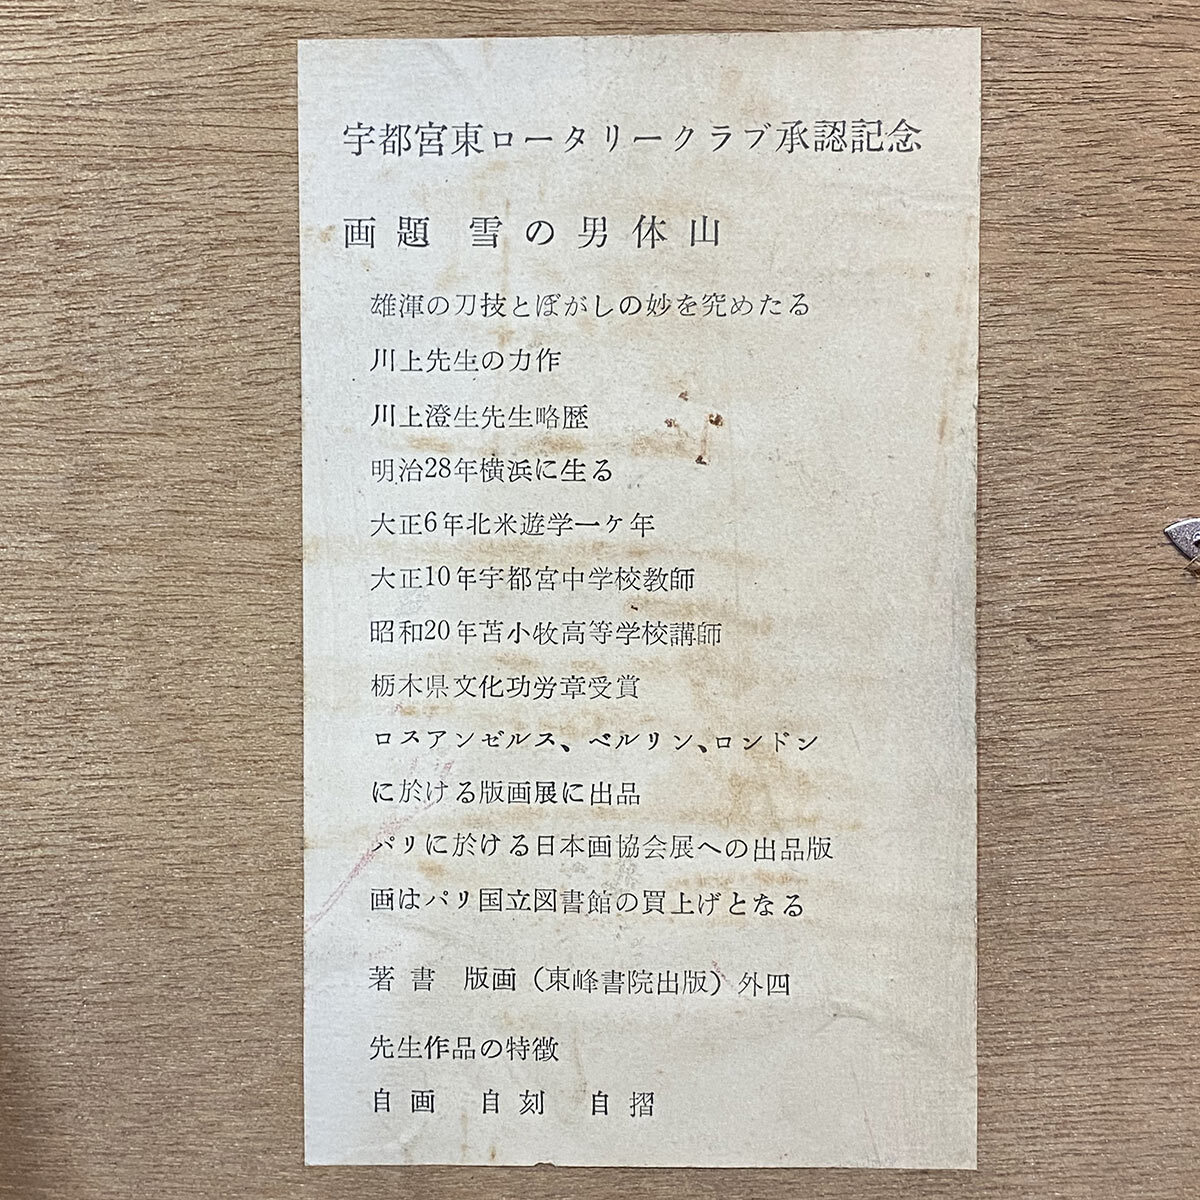 宇都宮東ロータリークラブ承認記念
画題 雪の男体山
雄渾の刀技とぼがしの妙を究めたる
川上先生の力作
川上澄生先生略歴
明治28年横浜に生る
大正6年北米遊学一ケ年
大正10年宇都宮中学校教師
昭和20年苫小牧高等学校講師
栃木県文化功労章受賞
ロスアンゼルス、ベルリン、ロンドン
に於ける版画展に出品
パリに於ける日本画協会展への出品版
画はパリ国立図書館の買上げとなる
著書 版画（東峰書院出版）外四
先生作品の特徴
自画 自刻 自摺